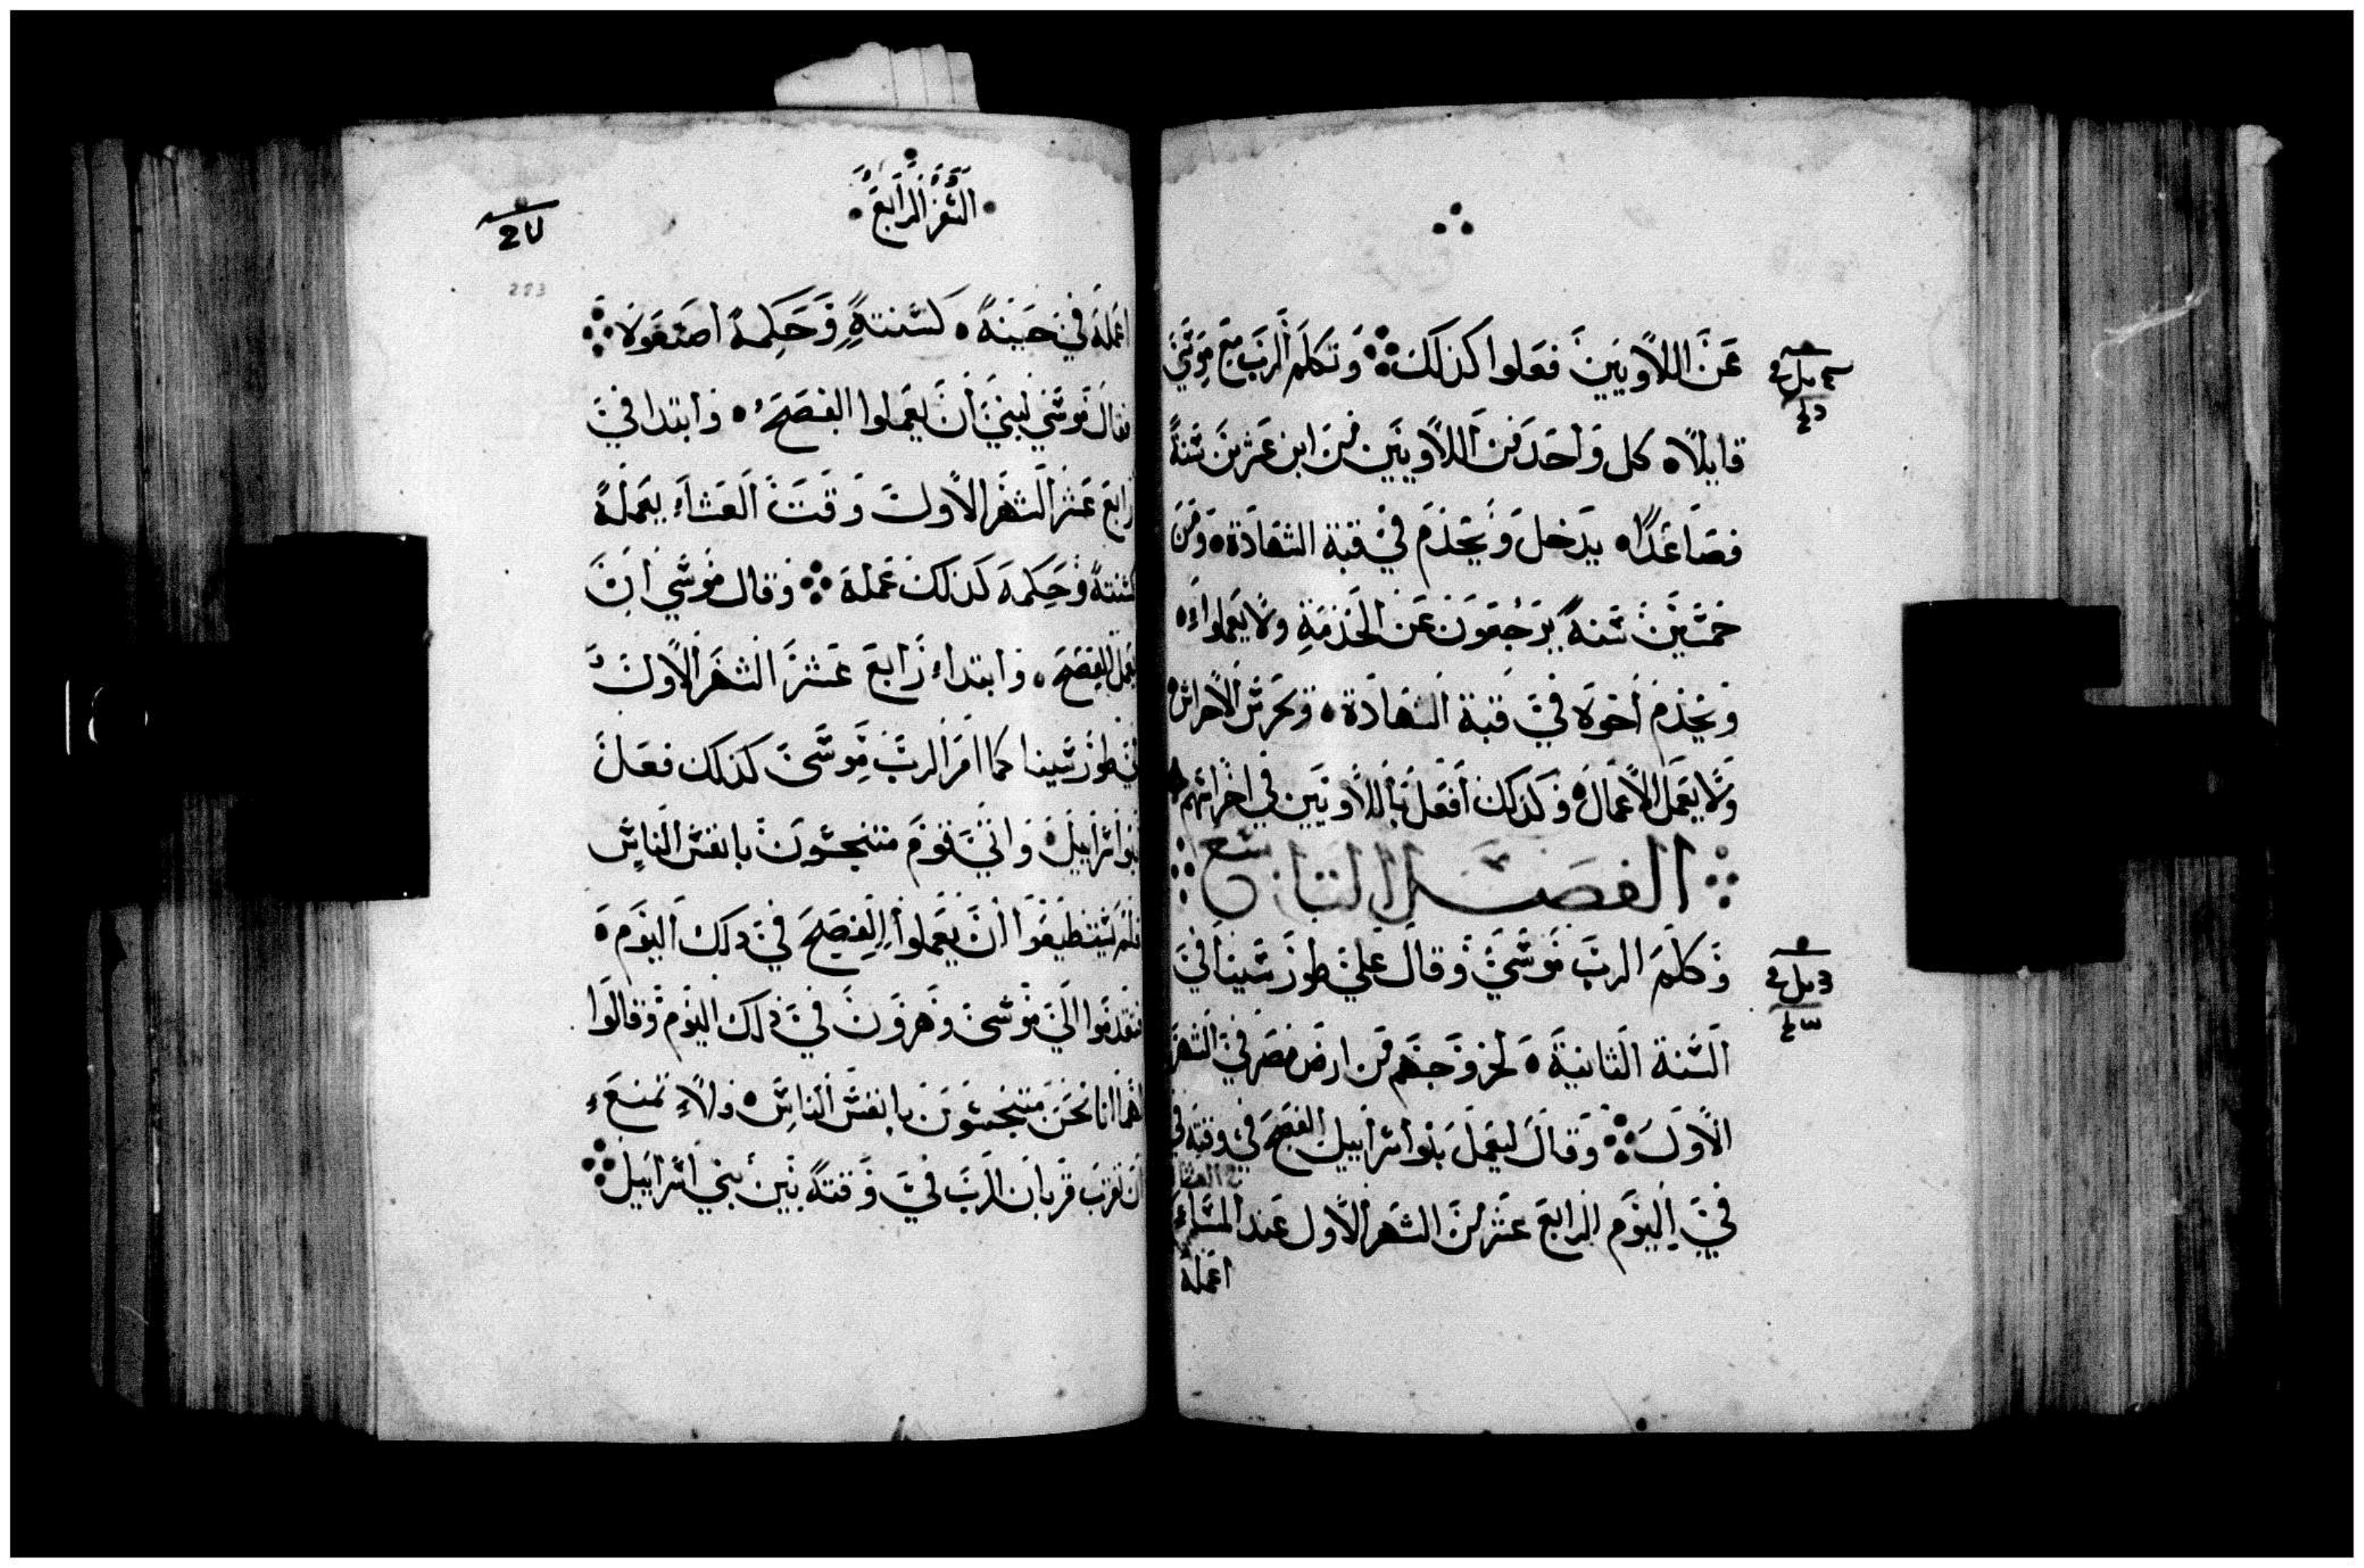 عن اللاويين فعلوا كذلك وتكلم الرب مع موسي
قايلاً كل واحد من اللاويين من ابن عشرين سنة
فصاعداً يدخل ويخدم في قبة الشهادة ومن
خمسين سنة يرجعون عن الخدمة ولا يعملواء
ويخدم اخوه في قبة الشهادة ويحرس الاحراس
ولا يعمل الاعمال وكذلك افعل باللاويين في احراسهم
الفصل التاسع
وكلم الرب موسي وقال علي طور سينا في
السنة الثانية لخروجهم من ارض مصر في الشهر
الاول وقال ليعمل بنوا اسراييل الفصح في وقته في
في اليوم الرابع عشر من الشهر الاول عند المساء
اعمله
السفر الرابع
203
اعمله في حينه كسنته وحكمه اصنعوه
فقال موسي لبني ان يعملوا الفصح وابتدا في
رابع عشر الشهر الاول وقت العشاء يعمله
كسنته وحكمه كذلك عمله وقال موسي ان
يعمل الفصح وابتداء رابع عشر الشهر الاول
في طور سينا كما امر الرب موسى كذلك فعل
بنوا اسراييل واتي قوم متنجسون بانفس الناس
فلم يستطيعوا ان يعملوا الفصح في دلك اليوم
فتقدموا الي موسى وهرون في ذلك اليوم وقالوا
لهما انا نحن متنجسون بانفس الناس ولاء نمنع
ان نقرب قربان الرب في وقته بين بني اسراييل